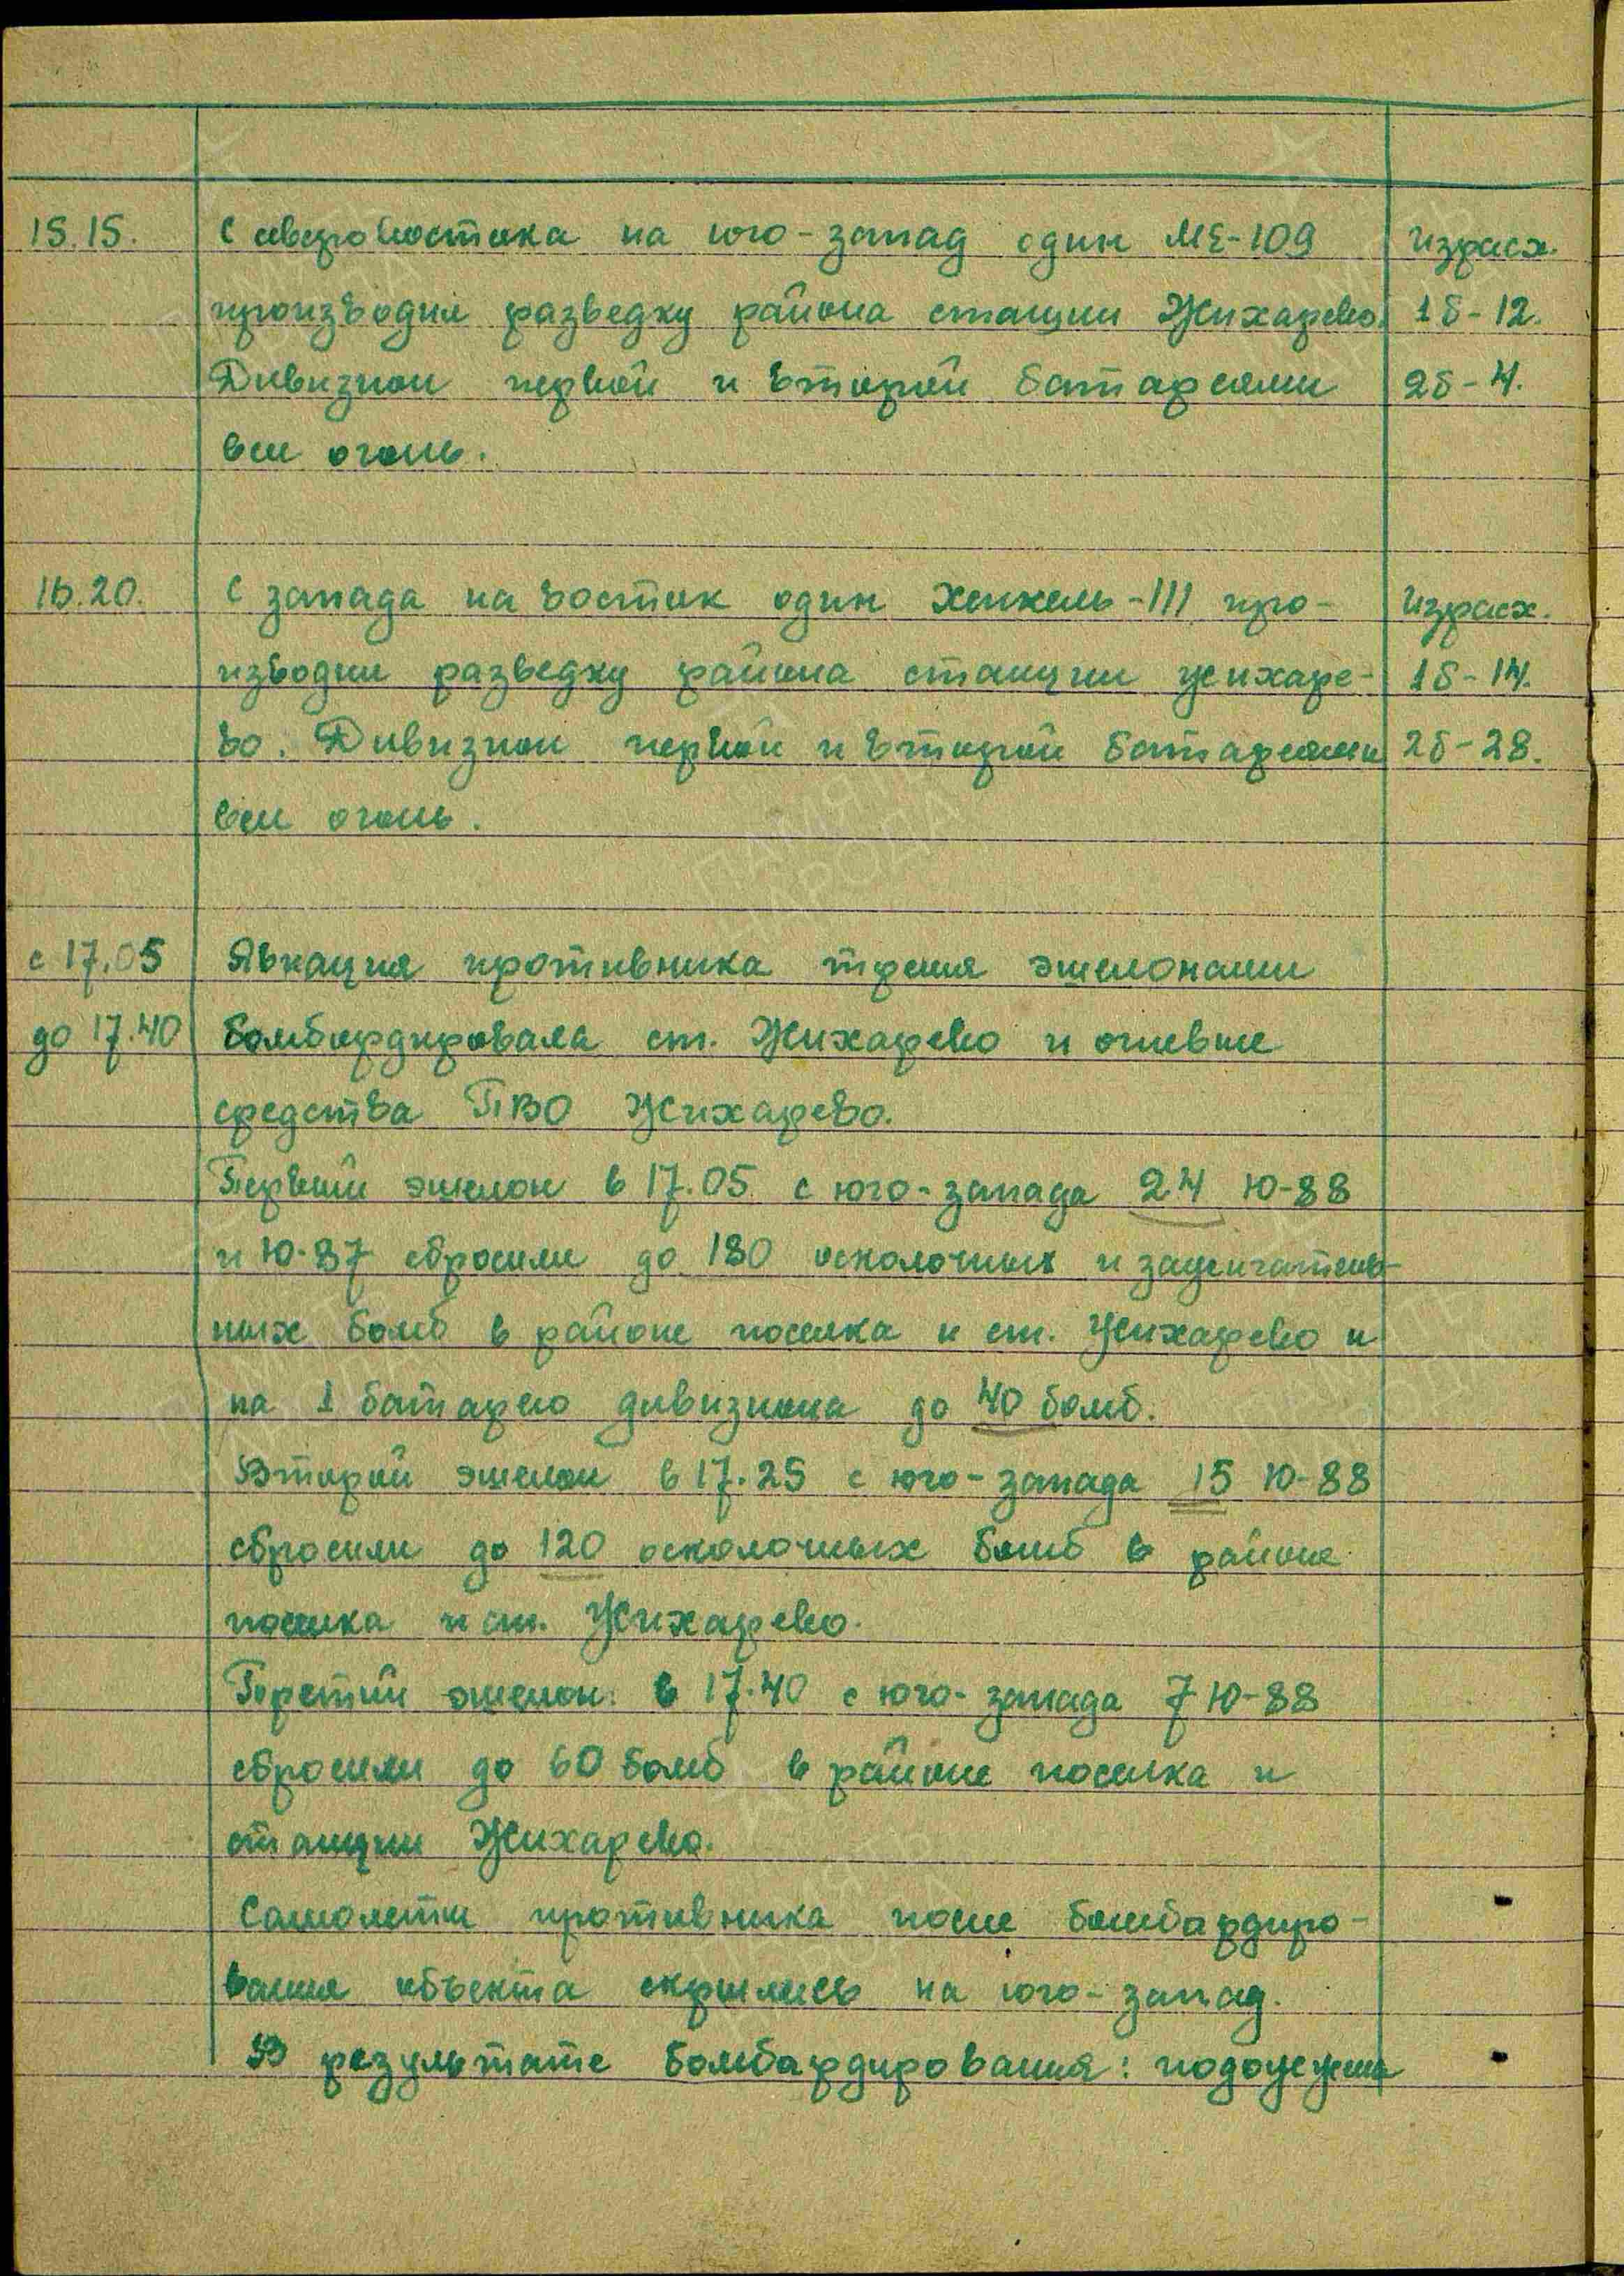 15.15. С северовостока на юго-запад один МЕ-109 израсх.
производил разведку района станции Жихарево. 1б-12.
Дивизион первой и второй батареями 2б-4.
вел огонь.
16.20. С запада на восток один Хенкель-111 про- Израсх.
изводил разведку района станции Жихаре- 1б-14.
во. Дивизион первой и второй батареями 2б-28.
вел огонь.
с 17.05 Авиация противника тремя эшелонами
до 17.40 бомбардировала ст. Жихарево и огневые
средства ПВО Жихарево.
Первый эшелон в 17.05 с юго-запада 24 Ю-88
и Ю-87 сбросили до 180 осколочных и зажигатель-
ных бомб в районе поселка и ст. Жихарево и
на 1 батарею дивизиона до 40 бомб.
Второй эшелон в 17.25 с юго-запада 15 Ю-88
сбросили до 120 осколочных бомб в районе
поселка и ст. Жихарево.
Третий эшелон в 17.40 с юго-запада 7 Ю-88
сбросили до 60 бомб в районе поселка и
станции Жихарево.
Самолеты противника после бомбардиро-
вания объекта скрылись на юго-запад.
В результате бомбардирования: подожжены
ПАМЯТЬ
НАРОДА